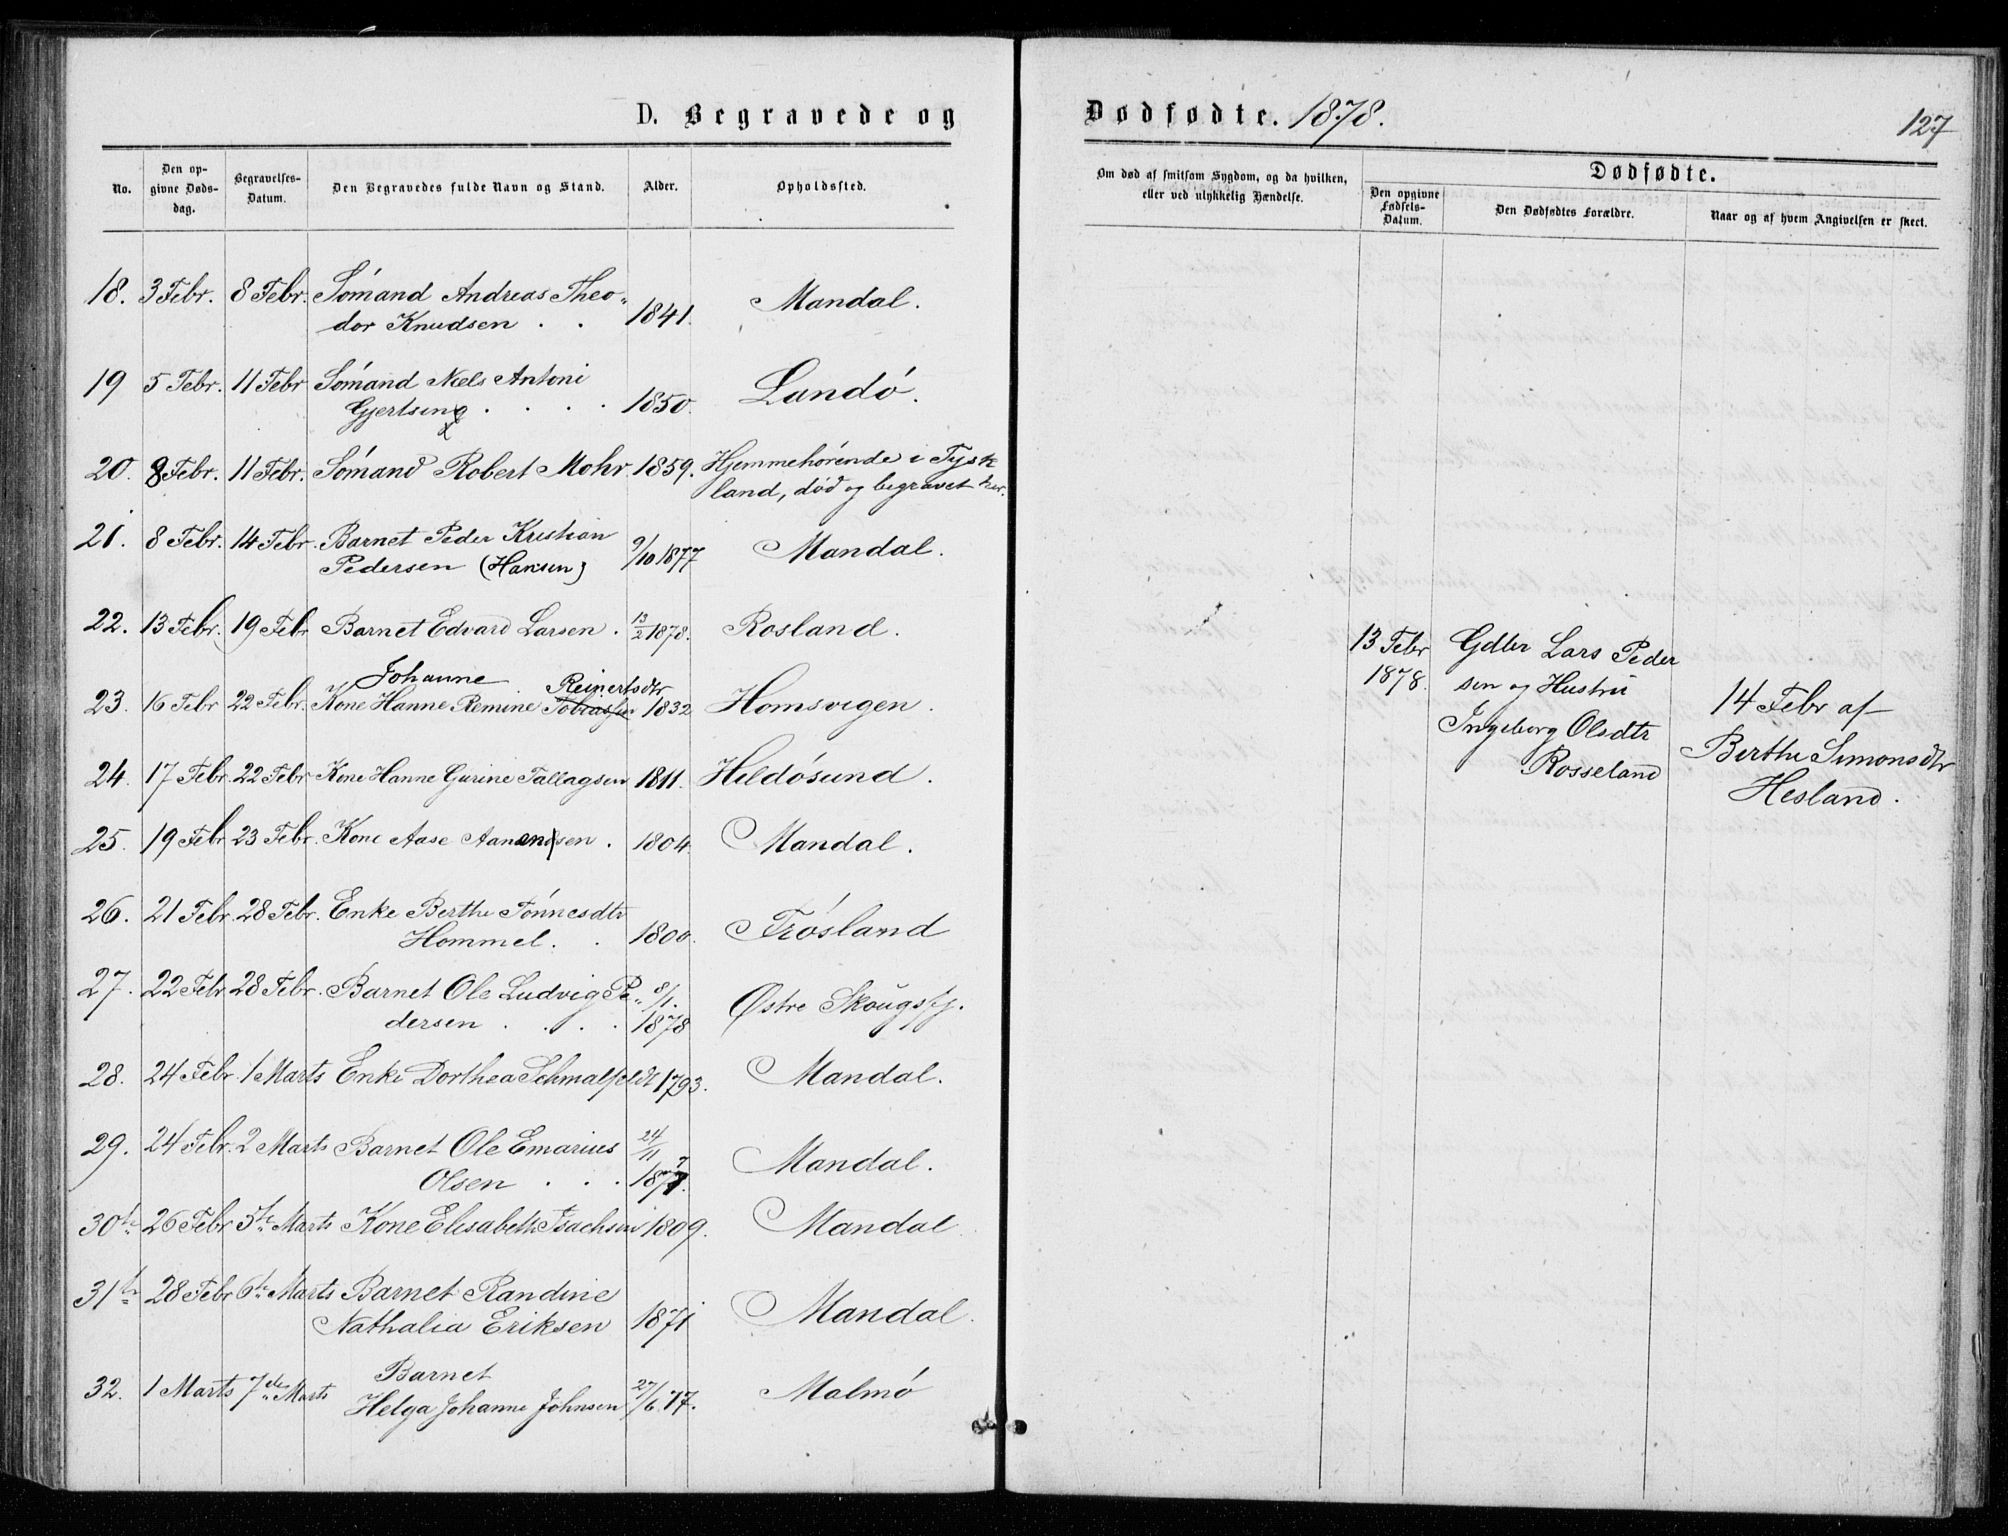 D. Begravede og
Dødfødte. 1878.
127
No.
Den op-
givne Døds-
dag.
Begravelses-
Datum.
Den Begravedes fulde Navn og Stand.
Alder.
Opholdssted.
Om død af smitsom Sygdom, og da hvilken,
eller ved ulykkelig Hændelse.
Dødfødte.
Den opgivne
Fødsels-
Datum.
Den Dødfødtes Forældre.
Naar og af hvem Angivelsen er skeet.
18. 3 Febr. 8 Febr. Sømand Andreas Theo-
dor Knudsen . . 1841. Mandal.
19 5 Febr. 11 Febr Sømand Niels Antoni
Gjertsen . . . . 1850. Landø.
20. 8 Febr. 11 Febr. Sømand Robert Mohr 1859. Hjemmehørende i Tysk
land, død og begravet her.
21. 8 Febr. 14 Febr. Barnet Peder Kristian
Pedersen (Hansen) 9/10 1877 Mandal.
22. 13 Febr. 19 Febr Barnet Edvard Larsen . 13/2 1878. Rosland.
Johanne Reinertsdtr
23. 16 Febr 22 Febr. Kone Hanne Remine Tobiassen 1832 Homsvigen.
24. 17 Febr. 22 Febr Kone Hanne Gurine Tallagsen 1811. Hildøsund.
25. 19 Febr 23 Febr. Kone Aase Aanensen . 1804. Mandal.
26. 21 Febr. 28 Febr. Enke Berthe Tønnesdtr
Hommel. . 1800. Trøsland
27. 22 Febr 28 Febr. Barnet Ole Ludvig Pe- 8/1.
dersen . . . . 1878 Østre Skougsfj.
28. 24 Febr. 1 Marts Enke Dorthea Schmalfeldt 1793. Mandal.
29. 24 Febr. 2 Marts Barnet Ole Emarius 24/11
Olsen . . . 1877. Mandal.
30te 26 Febr 5te Marts Kone Elisabeth Isachsen 1809. Mandal
31te 28 Febr 6te Marts Barnet Randine
Nathalia Eriksen 1871 Mandal.
32. 1 Marts 7de Marts Barnet
Helga Johanne Johnsen 27/6 77. Malmø
13 Febr
1878.
Gdbr Lars Peder
sen og Hustru
Ingeborg Olsdtr
Rosseland
14 Febr af
Berthe Simonsdtr
Hesland.